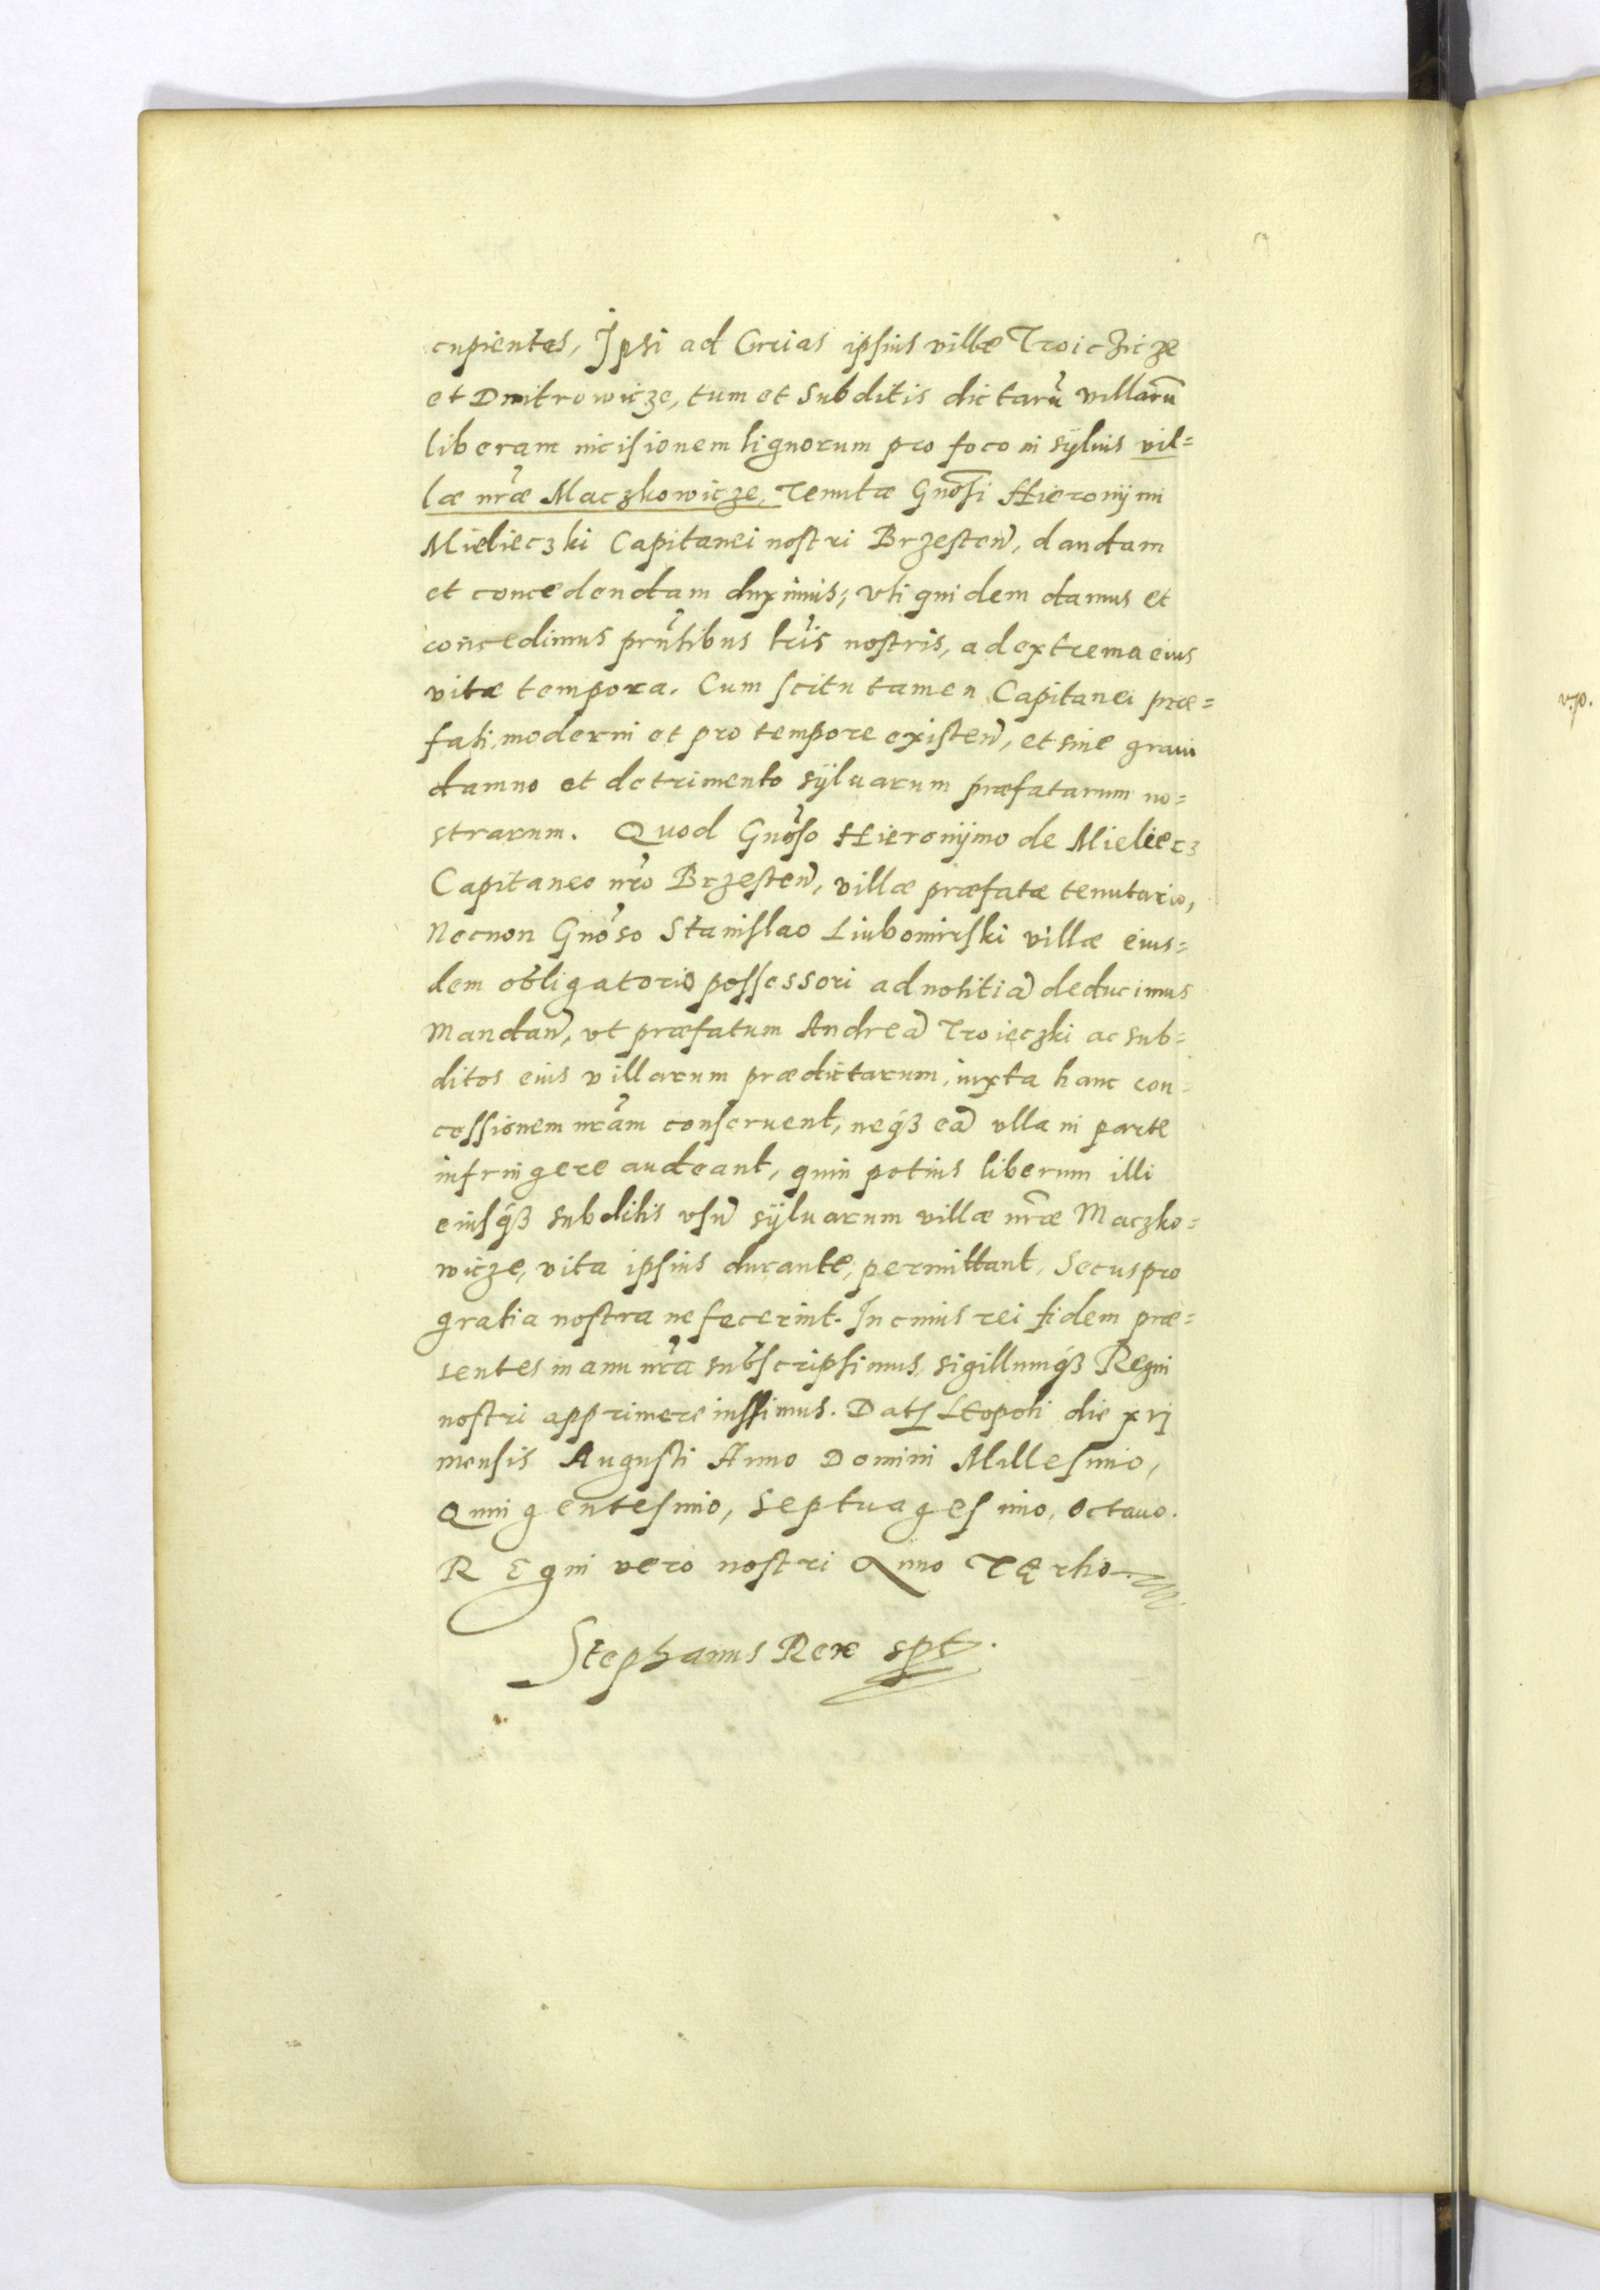 cupientes, Ipsi ad Curias ipsius villæ Troiczicze
et Dmitrowicze, tum et Subditis dictarũ villarũ
liberam incisionem lignorum pro foco in sÿluis vil=
læ nr̃æ Maczkowicze, Tenutæ Gnõsi Hieronÿmi
Mielieczki Capitanei nostri Brzesteñ, dandam
et concedendam duximus; Vti quidem damus et
concedimus prñtibus lr̃is nostris, ad extrema eius
vitæ tempora. Cum scitu tamen Capitanei præ=
fati, moderni et pro tempore existeñ, et sine graui
damno et detrimento sÿluarum præfatarum no=
strarum. Quod Gnõso Hieronÿmo de Mieliecz
Capitaneo nr̃o Brzesteñ, villæ præfatæ tenutario,
Necnon Gnõso Stanislao Liubomirski villæ eius=
dem obligatorio possessori ad notitiã deducimus
Mandañ, vt præfatum Andreã Troieczki ac sub=
ditos eius villarum prædictarum, iuxta hanc con=
cessionem nr̃am conseruent, neq́ꝫ eã vlla in parte
infringere audeant, quin potius liberum illi
eiusq́ꝫ subditis vsũ sÿluarum villæ nr̃æ Maczko=
wicze, vita ipsius durante, permittant, Secus pro
gratia nostra ne fecerint. In cuius rei fidem præ=
sentes manu nr̃a subscripsimus, sigillumq́ꝫ Regni
nostri apprimere iussimus. Dat Leopoli die xvj
mensis Augusti Anno Domini Millesimo,
Quingentesimo, Septuagesimo, Octauo.
REgni vero nostri Anno TErtio
Stephanus Rex spt.
v.p.